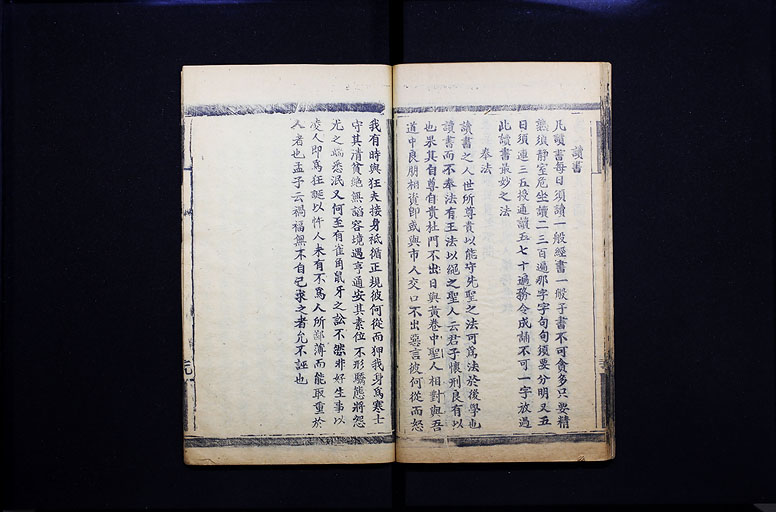 讀書
凡讀書每日須讀一般經書一般子書不可貪多只要精
熟須靜室危坐讀二三百遍那字字句句須要分明又五
日須連三五授通讀五七十遍務令成誦不可一字放過
此讀書最妙之法
奉法
讀書之人世所尊貴以能守先聖之法可為法於後學也
讀書而不奉法有王法以繩之聖人云君子懷刑良有以
也果其自尊自貴杜門不出日與黃卷中聖人相對與吾
道中良朋相資即或與市人交口不出惡言彼何從而怒
我有時與狂夫接身祗循正規彼何從而狎我身為寒士
守其清貧絕無諂容境遇亨通安其素位不形驕態將怨
尤之端悉泯又何至有雀角鼠牙之訟不然非好生事以
凌人即為狂誕以忤人未有不為人所鄙薄而能取重於
人者也孟子云禍福無不自己求之者允不誣也